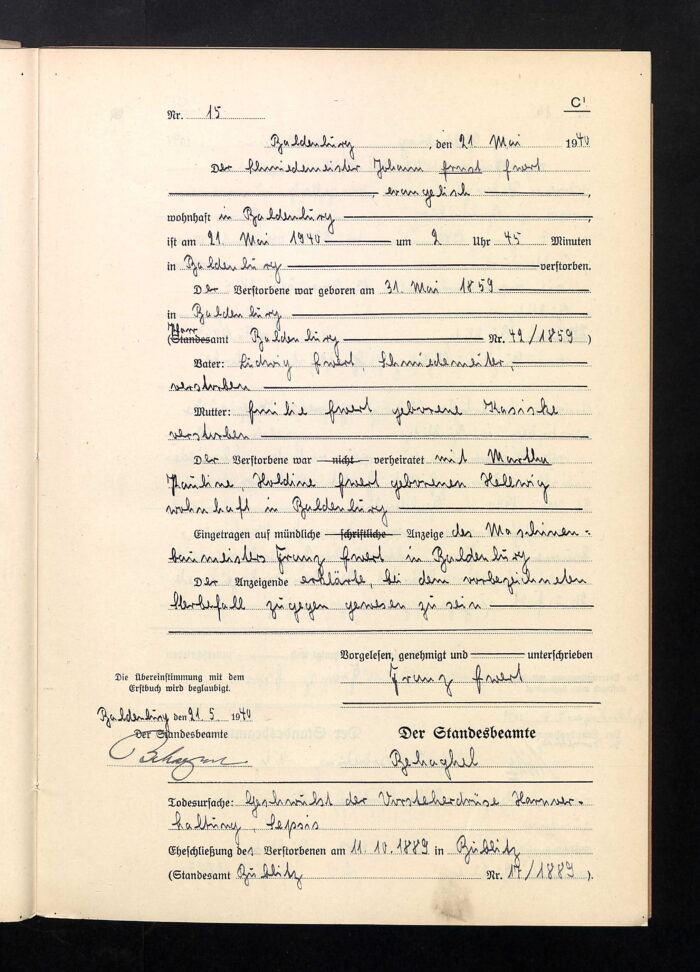 C¹
Nr. 15
Baldenburg, den 21. Mai 1940
Der Schmiedemeister Johann Ernst Ewert
evangelisch,
wohnhaft in Baldenburg
ist am 21. Mai 1940 um 2 Uhr 45 Minuten
in Baldenburg verstorben.
Der Verstorbene war geboren am 31. Mai 1859
in Baldenburg
Pfarr
(Standesamt Baldenburg Nr. 49/1859)
Vater: Ludwig Ewert, Schmiedemeister,
verstorben
Mutter: Emilie Ewert geborene Kasiske
verstorben
Der Verstorbene war nicht verheiratet mit Martha
Pauline, Holdine Ewert geborenen Hellwig
wohnhaft in Baldenburg
Eingetragen auf mündliche schriftliche Anzeige des Maschinen=
baumeisters Franz Ewert in Baldenburg
Der Anzeigende erklärte, bei dem vorbezeichneten
Sterbefall zugegen gewesen zu sein
Vorgelesen, genehmigt und unterschrieben
Franz Ewert
Die Übereinstimmung mit dem
Erstbuch wird beglaubigt.
Baldenburg den 21. 5. 1940
Der Standesbeamte
Der Standesbeamte
Behaghel
Todesursache: Geschwulst der Vorsteherdrüse Harnver-
haltung, Sepsis
Eheschließung des Verstorbenen am 11. 10. 1889 in Bublitz
(Standesamt Bublitz Nr. 17/1889).